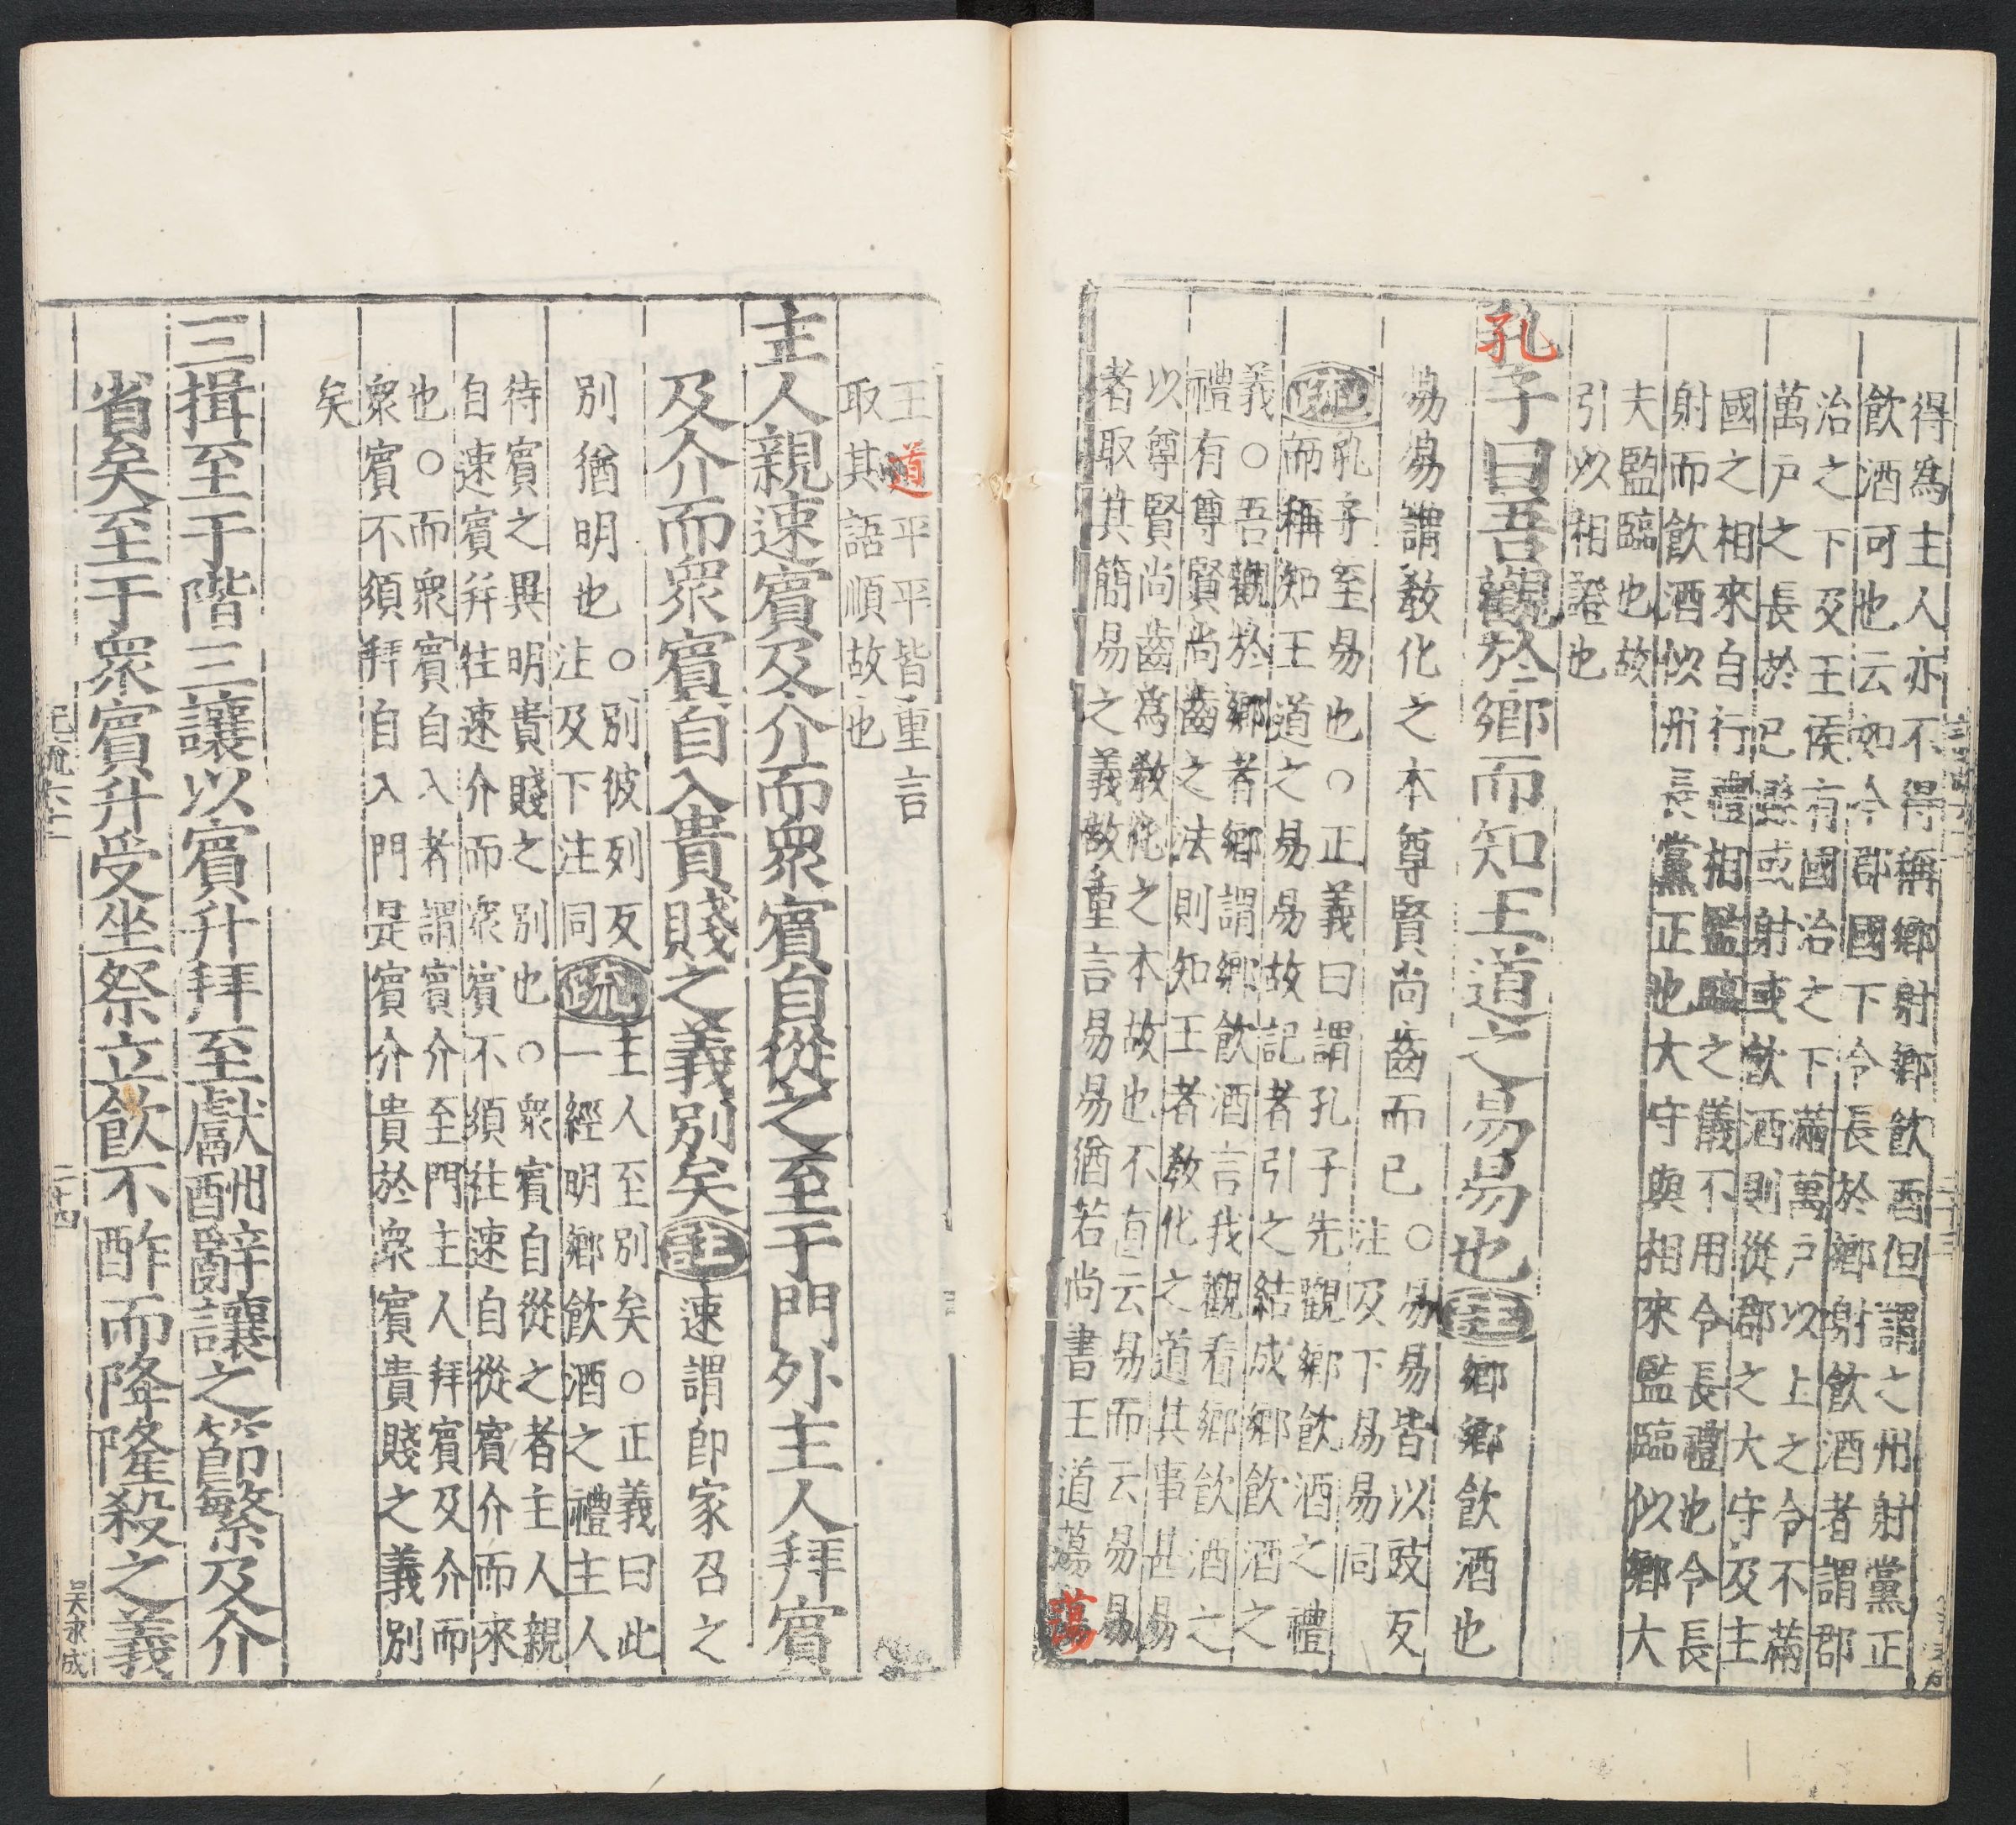 得為主人亦不得稱鄉射鄉飲酒但謂之州射黨正
飲酒可也云如今郡國下令長於鄉射飲酒者謂郡
治之下及王侯有國治之下滿萬戶以上之令不滿
萬戶之長於已縣或射或飲酒則從郡之大守及主
國之相來自行禮相監臨之儀不用令長禮也令長
射而飲酒似州長黨正也大守與相來監臨似鄉大
夫監臨也故
引以相證也
孔子曰吾觀於鄉而知王道之易易也註鄉鄉飲酒也
易易謂教化之本尊賢尚齒而已○易易皆以豉反
注及下易易同
疏孔子至易也○正義曰謂孔子先觀鄉飲酒之禮
而稱知王道之易易故記者引之結成鄉飲酒之
義○吾觀於鄉者鄉謂鄉飲酒言我觀看鄉飲酒之
禮有尊賢尚齒之法則知王者教化之道其事甚易
以尊賢尚齒為教化之本故也不直云易而云易易
者取其簡易之義故重言易易猶若尚書王道蕩蕩
王道平平皆重言
取其語順故也
主人親速賓及介而眾賓自從之至于門外主人拜賓
及介而眾賓自入貴賤之義別矣註速謂即家召之
別猶明也○別彼列反
注及下注同
疏主人至別矣○正義曰此
一經明鄉飲酒之禮主人
待賓之異明貴賤之別也○眾賓自從之者主人親
自速賓并往速介而眾賓不須往速自從賓介而來
也○而眾賓自入者謂賓介至門主人拜賓及介而
眾賓不須拜自入門是賓介貴於眾賓貴賤之義別
矣
三揖至于階三讓以賓升拜至獻酬辭讓之節繁及介
省矣至于眾賓升受坐祭立飲不酢而降隆殺之義
記疏六十一
二十四
吳永成